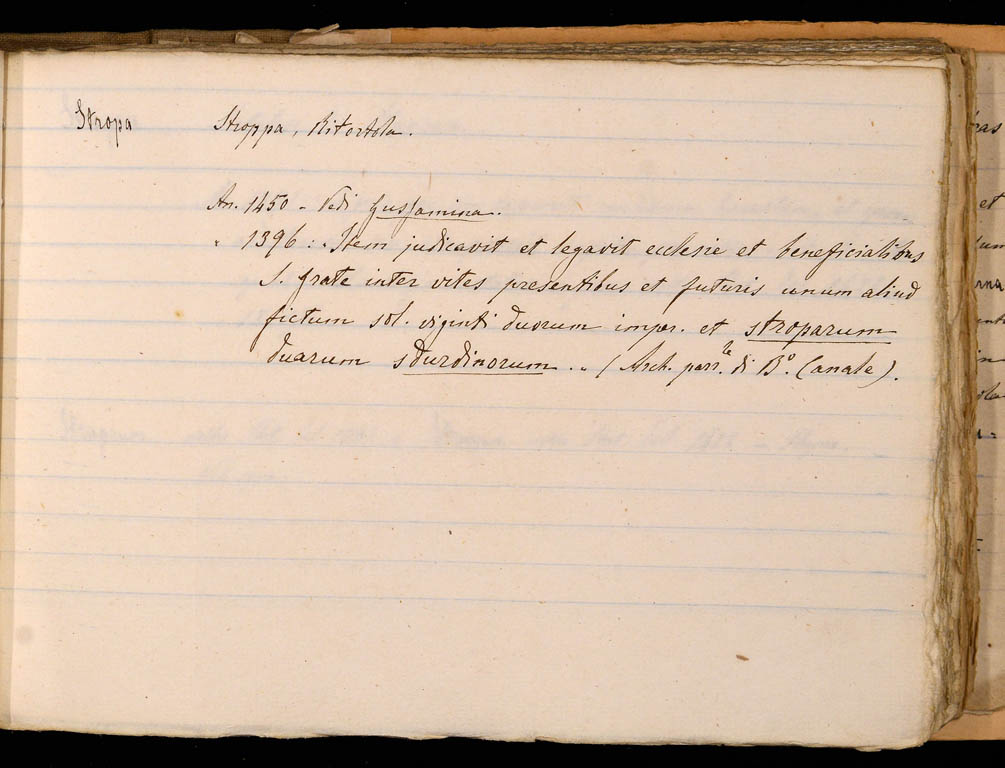 Stropa Stroppa, Ritortola.
An. 1450 - Vedi Gussamina.
" 1396: "Item judicavit et legavit ecclesie et beneficialibus
S. grate inter vites presentibus et futuris unum aliud
fictum sol. viginti duorum imper. et stroparum
duarum sdurdinorum." (Arch. parr.le di B.o (anale).